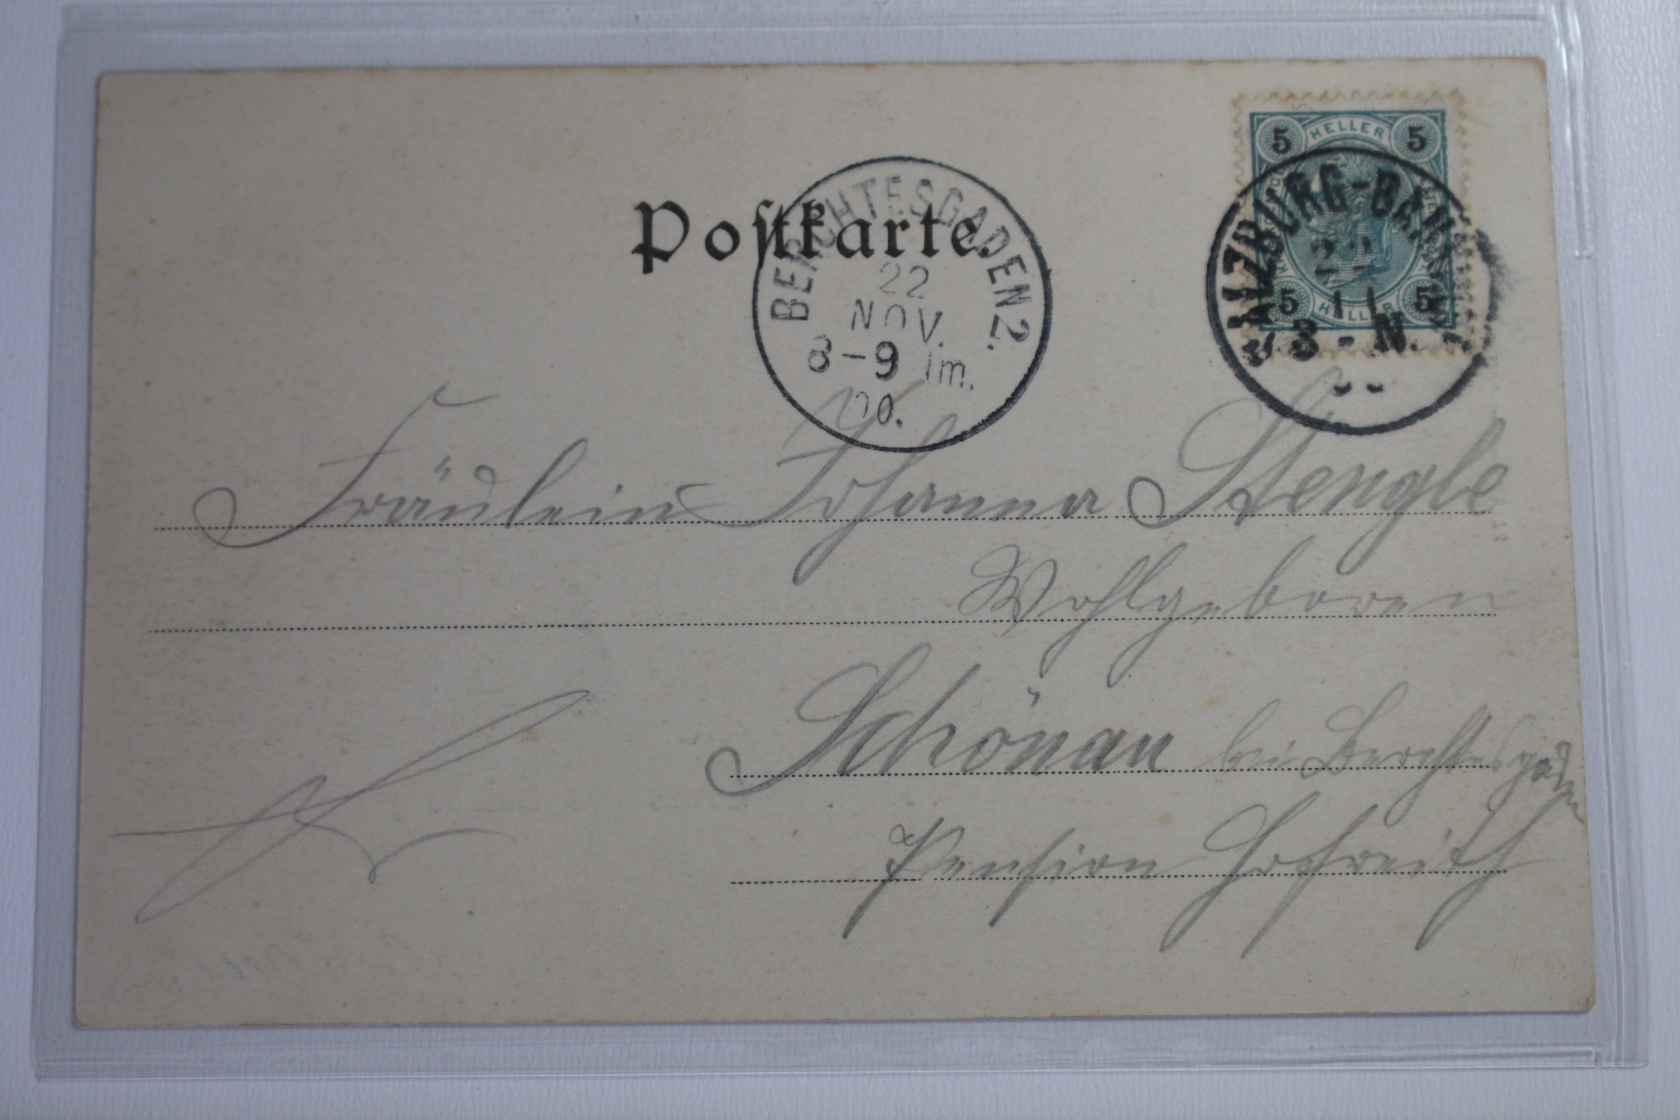 Postkarte.
BERCHTESGADEN 2.
22
NOV.
8-9 Vm.
00.
5 HELLER 5
5 HELLER 5
SALZBURG-BAHNHOF
22
11
8-N.
Fräulein Johanna Stengle
Wohlgeboren
Schönau bei Berchtesgaden
Pension Hofreith